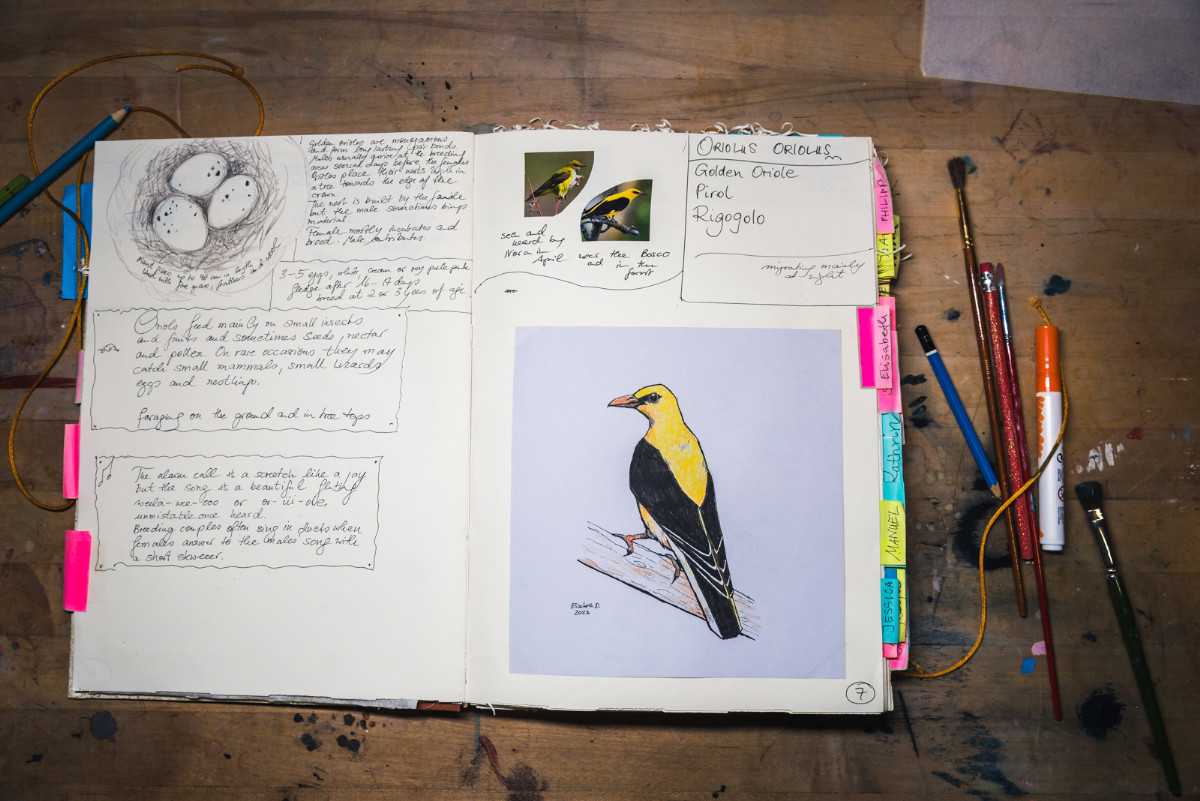 Golden orioles are monogamous
and form long lasting pair bonds.
Males usually arrive at the breeding
areas several days before the females
Orioles place their nests high in
a tree towards the edge of the
crown
The nest is built by the female
but the male sometimes brings
material.
Female mostly incubates and
brood. Male contributes.
3-5 eggs, white, cream or very pale pink
fledge after 16-17 days
breed at 2 or 3 years of age
Oriols feed mainly on small insects
and fruits and sometimes seeds, nectar
and pollen. On rare occasions they may
catch small mammals, small lizards
eggs and nestlings.
foraging on the ground and in tree tops
The alarm call is a screetch like a jay
but the song is a beautiful fluting
weela-wee-ooo or or-iii-ole,
unmistable once heard.
Breeding couples often sing in duets when
females answer to the males song with
a short skweeer.
seen and
heard by
in
April near the Bosco
and in the
forest
ORIOLUS ORIOLUS
Golden Oriole
Pirol
Rigogolo
migrating mainly
at night
Elisabeth D.
7
PHILIPP
Elisabeth
Kathrin
MANUEL
JESSICA